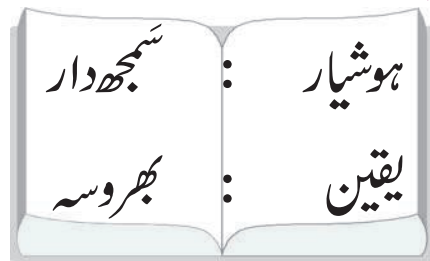 ہوشیار : سَمجھ دار
یقین : بھروسہ